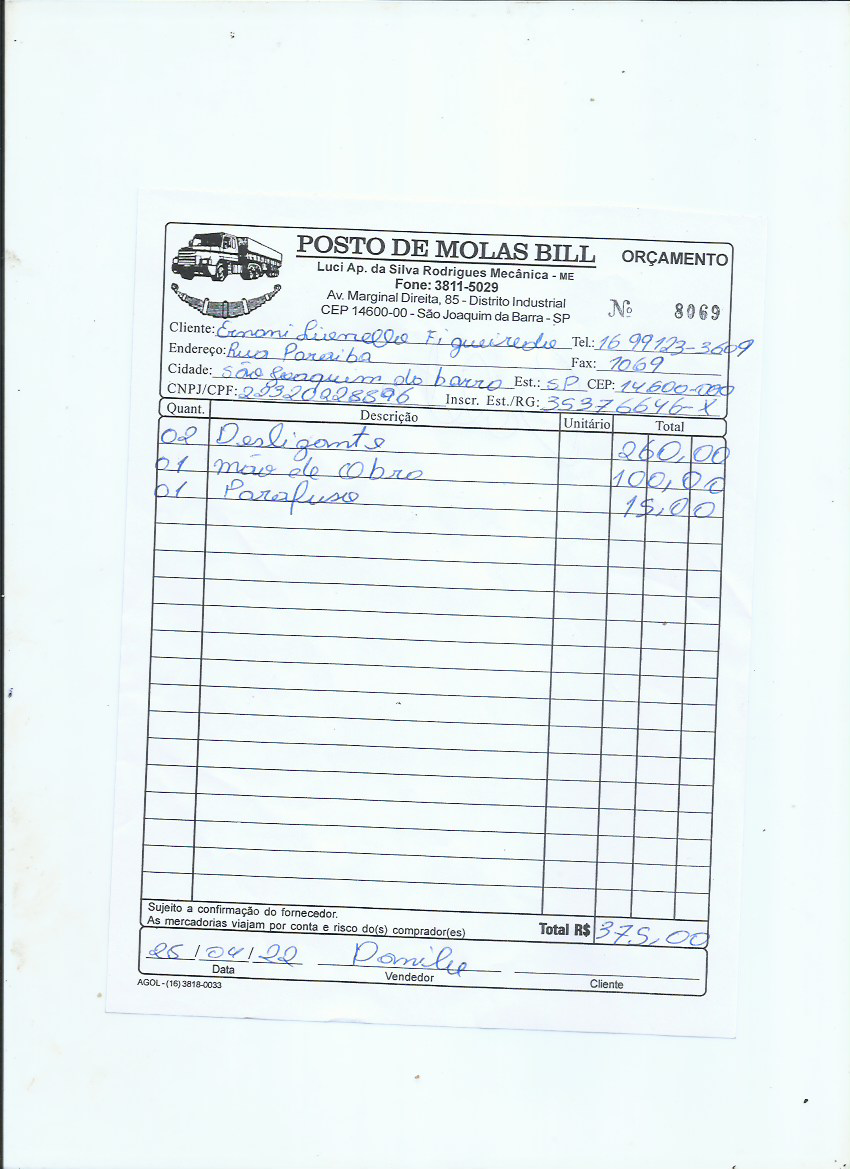 POSTO DE MOLAS BILL ORÇAMENTO
Luci Ap. da Silva Rodrigues Mecânica - ME
Fone: 3811-5029
Av. Marginal Direita, 85 - Distrito Industrial
CEP 14600-00 - São Joaquim da Barra - SP
Nº 8069
Cliente: Ernani Lionello Figueiredo Tel.: 16 99123-3609
Endereço: Rua Paraiba Fax: 1069
Cidade: São Joaquim da barra Est.: SP CEP: 14600-000
CNPJ/CPF: 22320228896 Inscr. Est./RG: 35376646-X
Quant. Descrição Unitário Total
02 Deslizante 260,00
01 mão de Obra 100,00
01 Parafuso 15,00
Sujeito a confirmação do fornecedor.
As mercadorias viajam por conta e risco do(s) comprador(es) Total R$ 375,00
25/04/22 Danilu
Data Vendedor Cliente
AGOL - (16) 3818-0033